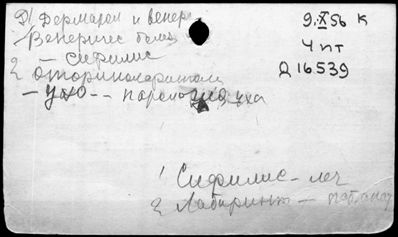 Д/ Дерматол и венер
Венерич болез
– сифилис
2 оториноларингол
– ухо – – патология уха
9.X 56 К
4 пт
Д 16539
1 Сифилис – леч
2 Лабиринт –